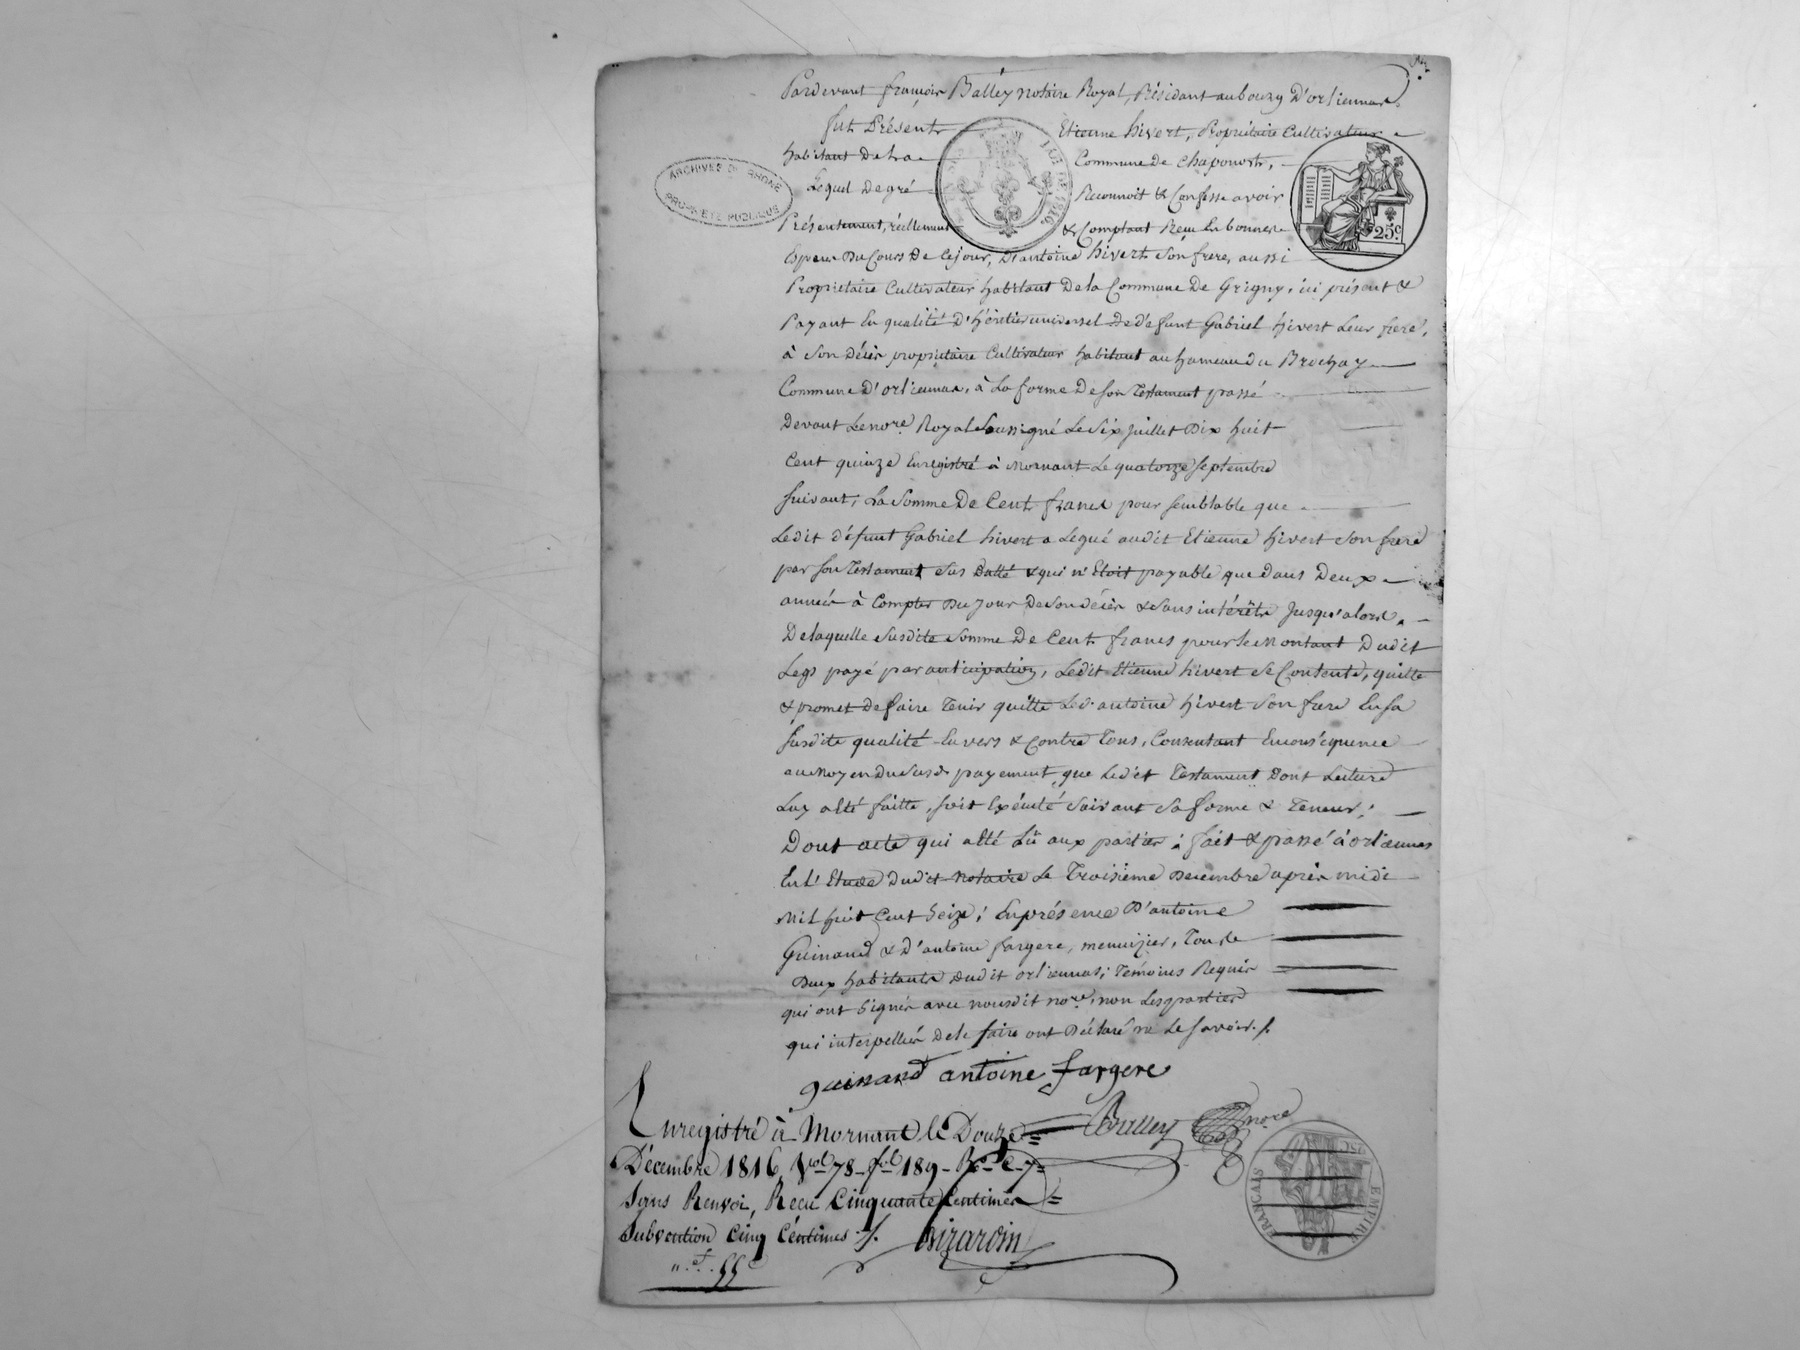 Pardevant françois Balley notaire Royal, Résidant au bourg D'orliennas,
fut Présent Etienne hivert, Propriétaire Cultivateur
habitant De la Commune De Chaponost,
Lequel De gré Reconnoit & Confesse avoir
Présentement, réellement & Comptant Reçu En bonnes
Espèces Du Cours De Cejour, D'antoine hivert Son frere, aussi
Propriétaire Cultivateur habitant De la Commune De Grigny, ici présent &
Payant En qualité D'héritier universel De défunt Gabriel hivert Leur frere,
à Son Décès propriétaire Cultivateur habitant au hameau du Brochay
Commune D'orliennas, à La forme De Son Testament passé
Devant Le nore. Royal Soussigné Le Six Juillet Dix huit
Cent quinze Enregistré à Mornant Le quatorze Septembre
Suivant, La Somme De Cent francs pour Semblable que
Ledit défunt Gabriel hivert a Legué audit Etienne hivert Son frere
par Son Testament Sus Datté & qui n'Etoit payable que Dans Deux
années à Compter Du Jour De Son décès & Sans intérêts Jusqu'alors.
De laquelle Susdite Somme De Cent francs pour Le Montant Dudit
Legs payé par anticipation, Ledit Etienne hivert Se Contente, quitte
& promet De faire Tenir quitte Led. antoine hivert Son frere En Sa
Susdite qualité Envers & Contre Tous, Consentant En conséquence
au Moyen Du Susd. payement, que Ledit Testament Dont Lecture
Luy a Eté faitte, Soit Exécuté Suivant Sa forme & Teneur;
Dont acte qui a Eté Lû aux parties; fait & passé à orliennas
En L'Etude Dudit Notaire Le Troisième Decembre après midi
Mil huit Cent Seize; En présence D'antoine
Guinand & D'antoine fargere, menuizier, Tous Le
Deux habitants Dudit orliennas; Témoins Requis
qui ont Signés avec nousdit nore., non Les parties
qui interpellées De Le faire ont Déclaré ne Le Savoir./.
guinand antoine fargere
Balley nore
Enregistré à Mornant le Douze
Décembre 1816, Vol 78 fol 189 Rc. C. 7
Sans Renvoi, Reçu Cinquante Centimes
Subvention Cinq Centimes ./.
Girardin
". f. 55 c
ARCHIVES DU RHÔNE
PROPRIÉTÉ PUBLIQUE
LOI DE 1816
25c
EMPIRE FRANÇAIS
25C